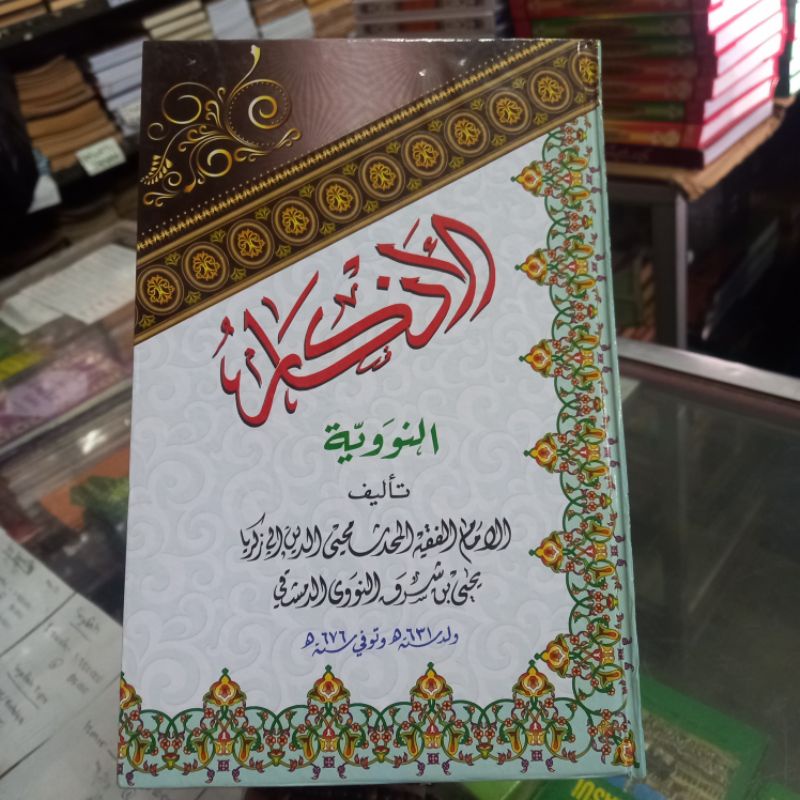 الأذكار
النووية
تأليف
الإمام الفقيه المحدث محيي الدين أبي زكريا
يحيى بن شرف النووي الدمشقي
ولد سنة ٦٣١ھ وتوفي سنة ٦٧٦ھ